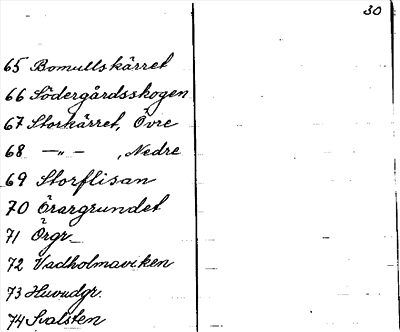 30
65 Bomullskärret
66 Södergårdsskogen
67 Storkärret, Övre
68 —〃— , Nedre
69 Storflisan
70 Örargrundet
71 Örgr.
72 Vadholmaviken
73 Huvudgr.
74 Svalsten